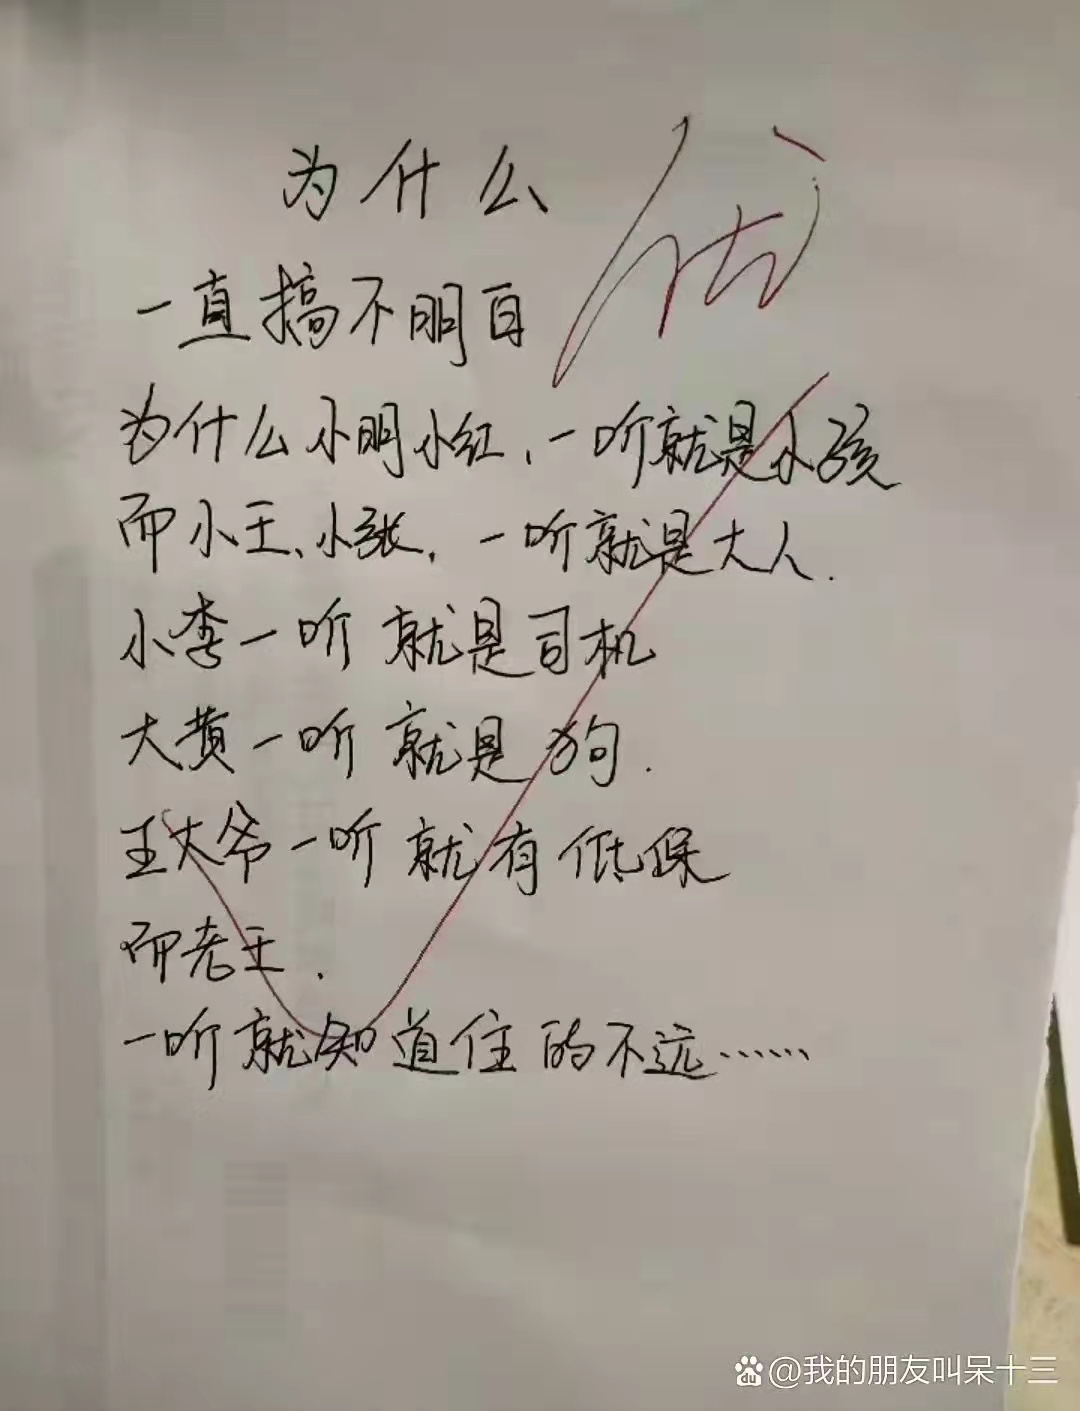 为什么
优
一直搞不明白
为什么小明小红，一听就是小孩
而小王、小张，一听就是大人.
小李一听就是司机
大黄一听就是狗.
王大爷一听就有低保
而老王.
一听就知道住的不远……
@我的朋友叫呆十三